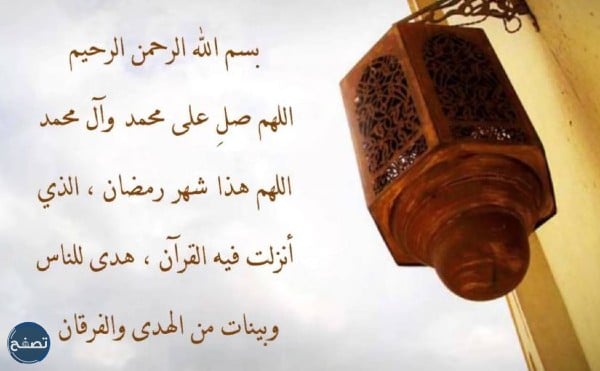 بسم الله الرحمن الرحيم
اللهم صلِ على محمد وآل محمد
اللهم هذا شهر رمضان ، الذي
أنزلت فيه القرآن ، هدى للناس
وبينات من الهدى والفرقان
تصفح